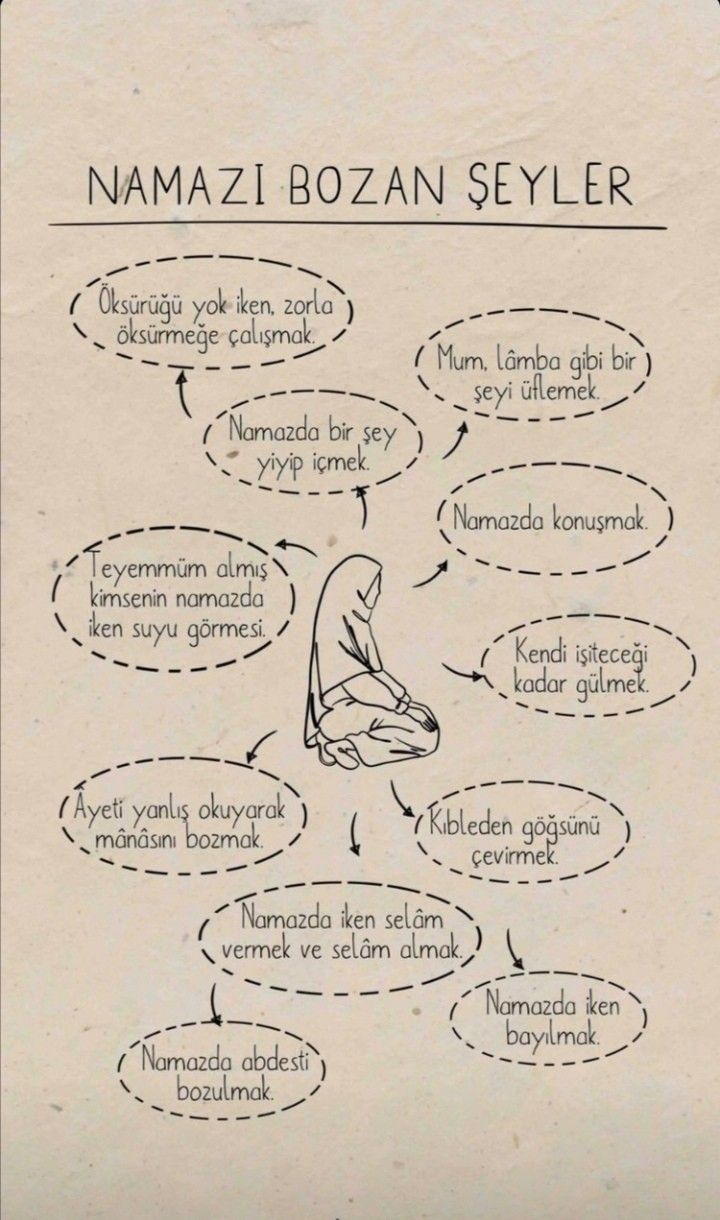 NAMAZI BOZAN ŞEYLER
Öksürüğü yok iken, zorla
öksürmeğe çalışmak.
Mum, lâmba gibi bir
şeyi üflemek.
Namazda bir şey
yiyip içmek.
Namazda konuşmak.
Teyemmüm almış
kimsenin namazda
iken suyu görmesi.
Kendi işiteceği
kadar gülmek.
Âyeti yanlış okuyarak
mânâsını bozmak.
Kıbleden göğsünü
çevirmek.
Namazda iken selâm
vermek ve selâm almak.
Namazda iken
bayılmak.
Namazda abdesti
bozulmak.